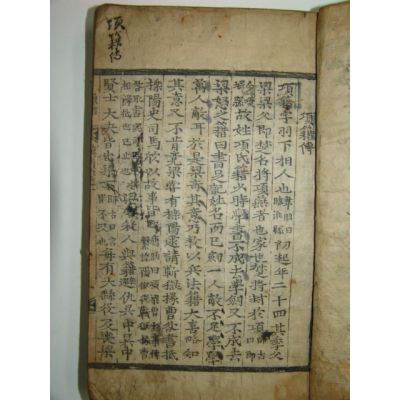 項籍傳
項籍字羽下相人也韋昭曰臨淮縣初起年二十四其季父
梁梁父即楚名將項燕者也家世楚將封於項
故姓項氏籍少時學書不成去學劍又不成去
梁怒之籍曰書足記姓名而已劍一人敵不足學學
萬人敵耳於是梁奇其意乃教以兵法籍大喜略知
其意又不肯竟梁嘗有櫟陽逮請蘄獄掾曹咎書抵
櫟陽史司馬欣以故事
殺人與籍避仇吳中吳中
賢士大夫皆出每有大繇役及喪梁
項籍傳